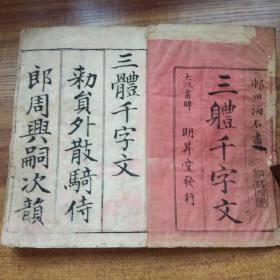 邨田海石書
三體千字文
大阪書肆 明昇堂發行
三體千字文
勑員外散騎侍
郎周興嗣次韻